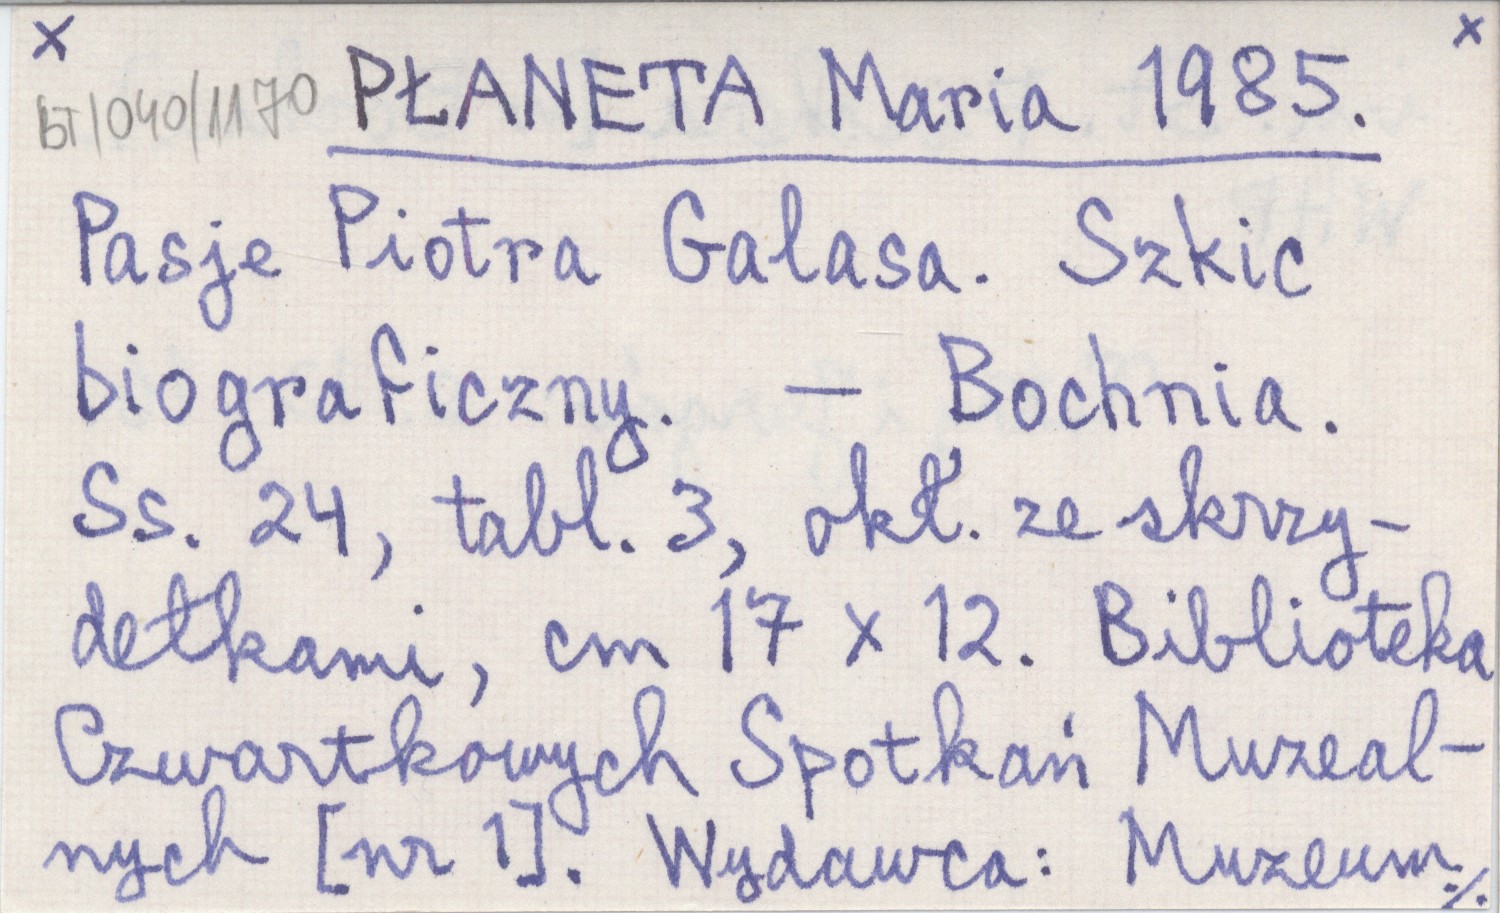 x x
BT/040/1170 PŁANETA Maria 1985.
Pasje Piotra Galasa. Szkic
biograficzny. – Bochnia.
Ss. 24, tabl. 3, okł. ze skrzy-
dełkami, cm 17 x 12. Biblioteka
Czwartkowych Spotkań Muzeal-
nych [nr 1]. Wydawca: Muzeum ./.